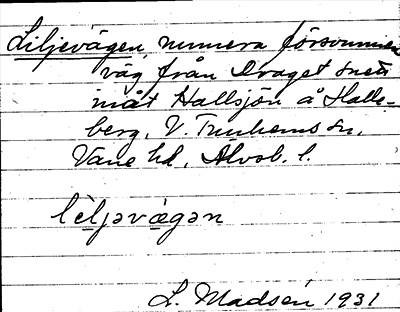 Liljevägen, numera försvunnen
väg från Draget snett
inåt Hallsjön å Halle-
berg, V. Tunhems sn,
Väne hd, Älvsb. l.
lìljəvägən
L. Madsén 1931